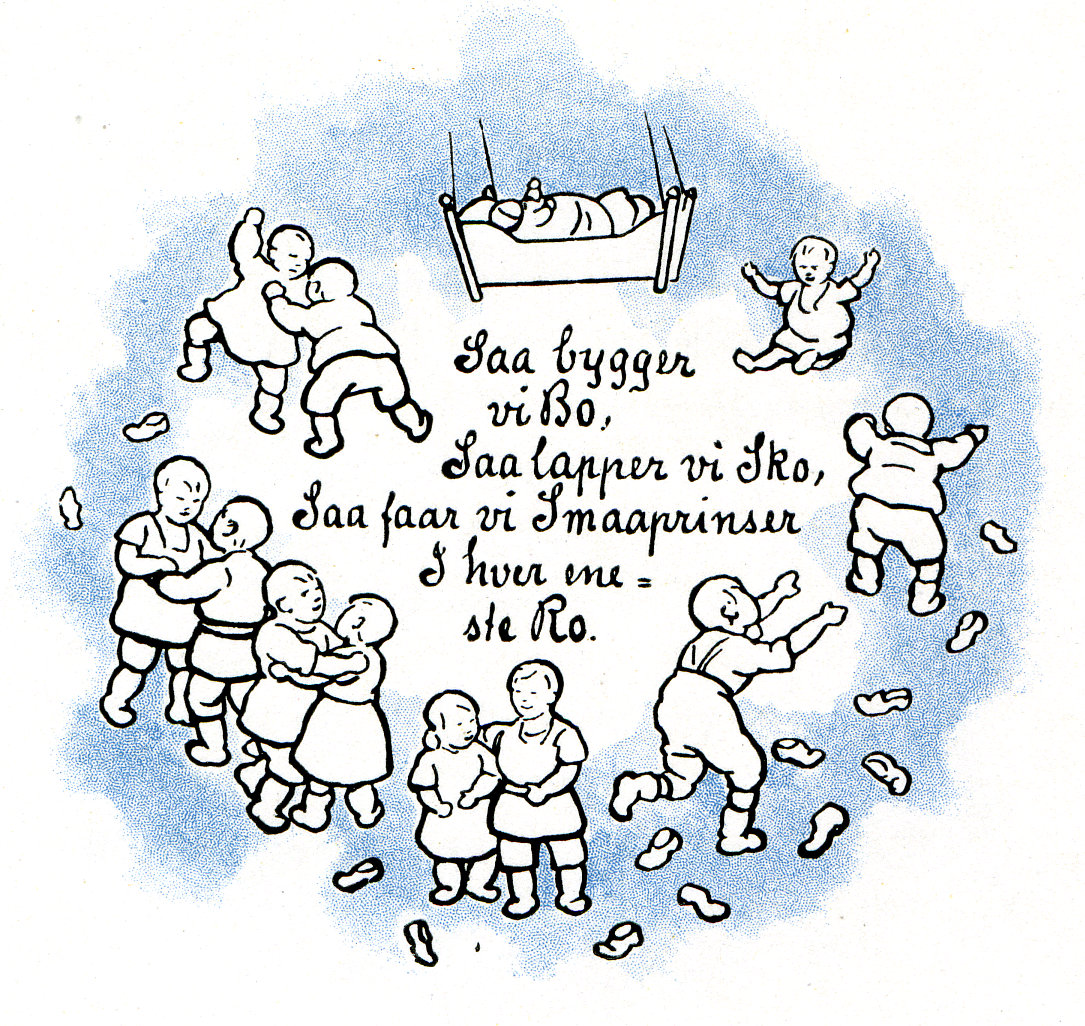 Saa bygger
vi Bo,
Saa lapper vi Sko,
Saa faar vi Smaaprinser
I hver ene=
ste Ro.